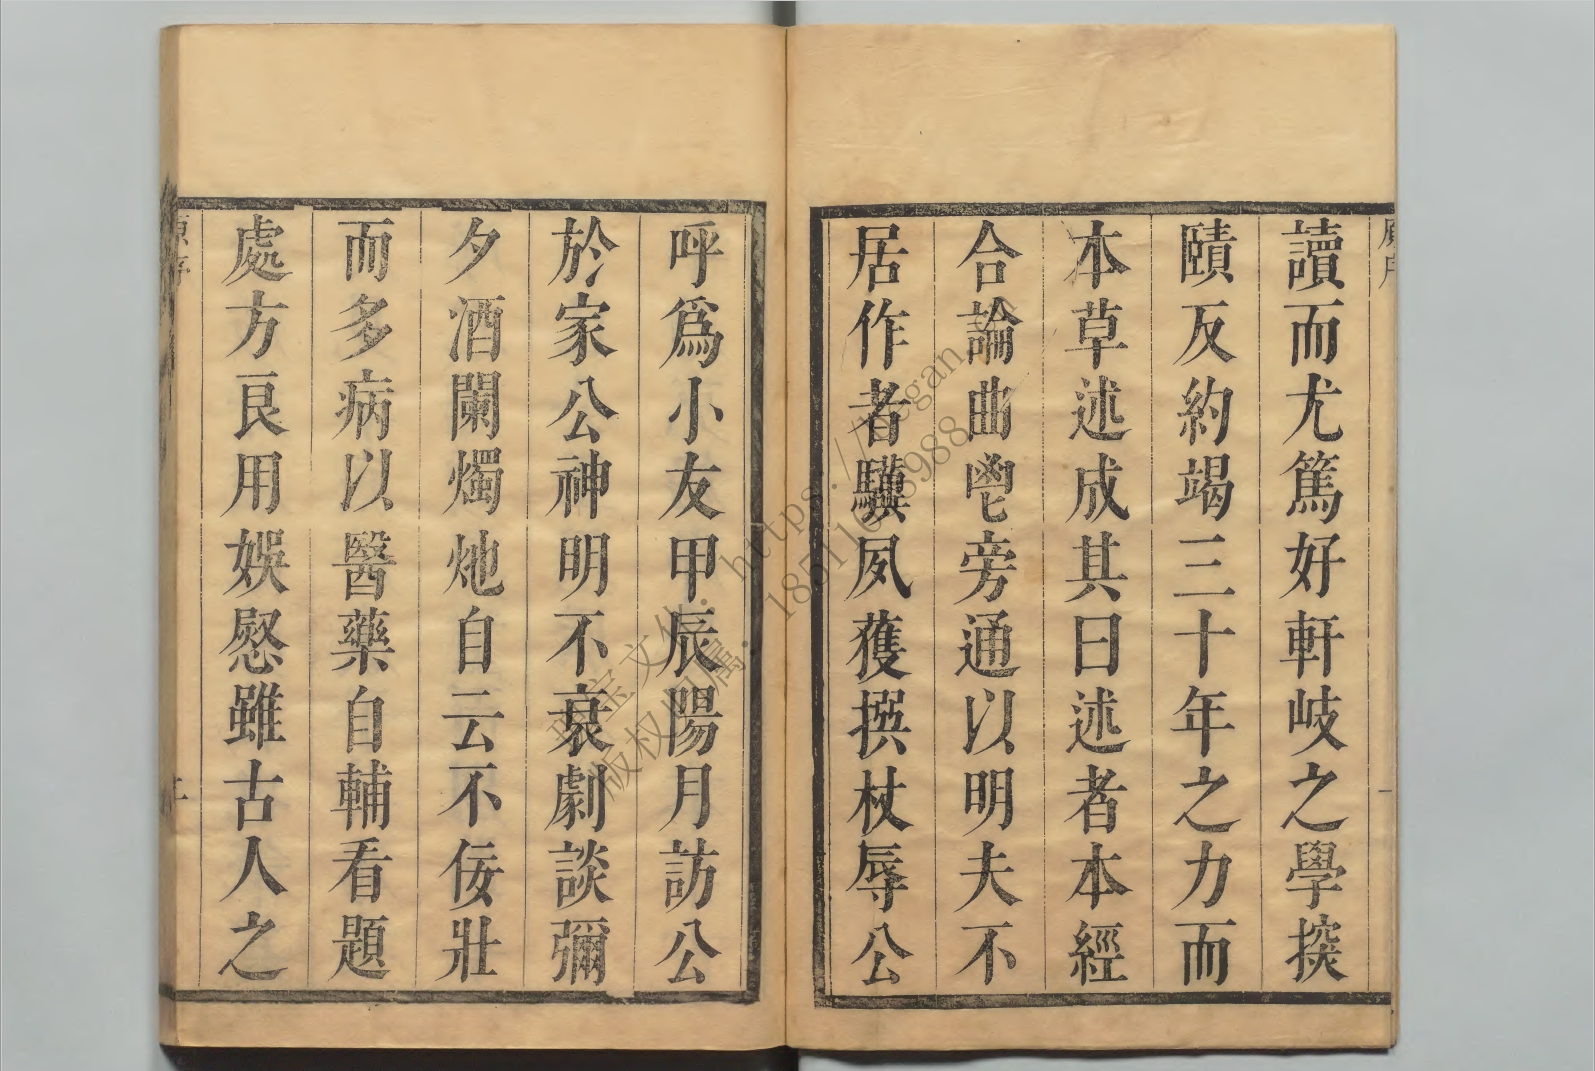 讀而尤篤好軒岐之學探
賾反約竭三十年之力而
本草述成其曰述者本經
合論曲鬯旁通以明夫不
居作者驥夙獲撰杖辱公
呼爲小友甲辰陽月訪公
於家公神明不衰劇談彌
夕酒闌燭灺自云不佞壯
而多病以醫藥自輔看題
處方良用娛慰雖古人之
https://
版权归属: